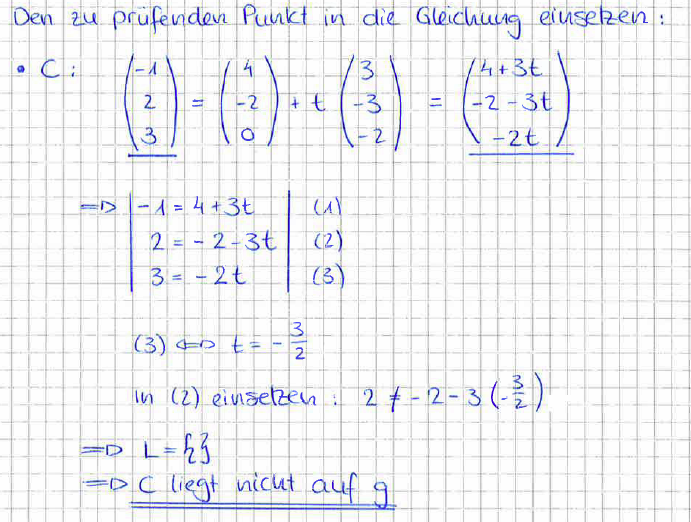 Den zu prüfenden Punkt in die Gleichung einsetzen:
• C: (-1 2 3) = (4 -2 0) + t (3 -3 -2) = (4+3t -2-3t -2t)
⇒ | -1 = 4+3t | (1)
2 = -2-3t | (2)
3 = -2t | (3)
(3) ⇔ t = -3/2
in (2) einsetzen: 2 ≠ -2-3(-3/2)
⇒ L = {}
⇒ C liegt nicht auf g